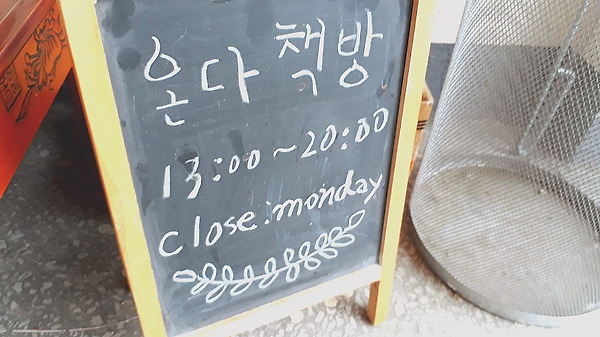 온다 책방
13:00~20:00
close:monday